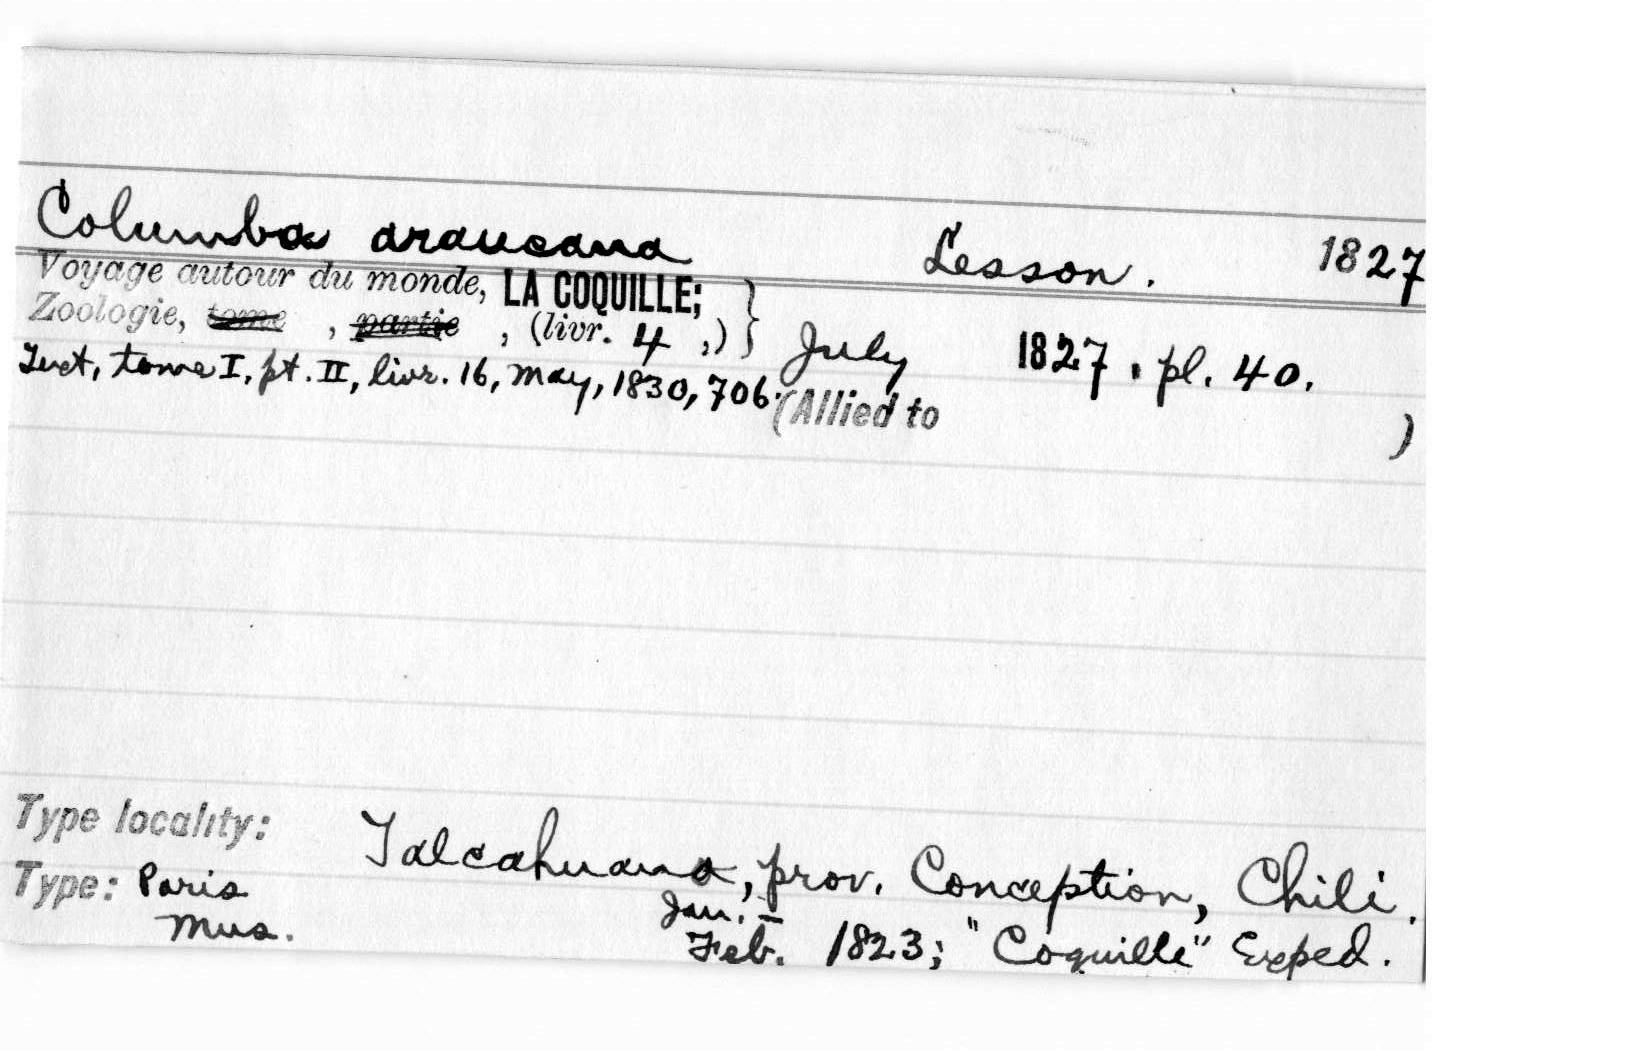 Columba araucana Lesson. 1827
Voyage autour du monde, LA COQUILLE;
Zoologie, tome , partie , (livr. 4 ,) } July 1827. pl. 40.
Text, tome I, pt. II, livr. 16, May, 1830, 706.
(Allied to )
Type locality: Talcahuana, prov. Conception, Chili.
Type: Paris
Mus.
Jan. –
Feb. 1823; "Coquille" Exped.